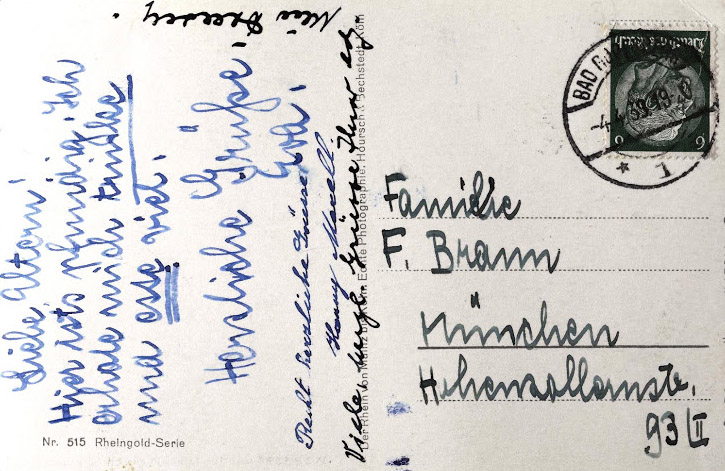 Liebe Eltern!
Hier ists pfundig. Ich
erhole mich tüchtig
und esse viel.
Herzliche Grüße!
Eva.
Recht herzliche Grüsse
Viele herzl. Grüsse Ihnen
Der Rhein von Mainz bis Köln. Echte Photographie. Hoursch & Bechstedt, Köln
Nr. 515 Rheingold-Serie
Deutsches Reich
6 6
BAD
1
Familie
F. Braun
München
Hohenzollernstr.
93/II